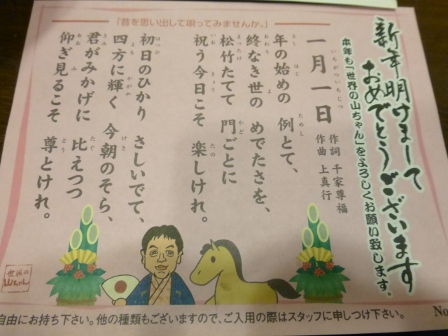 「昔を思い出して唄ってみませんか。」
新年明けまして
おめでとうございます
本年も「世界の山ちゃん」をよろしくお願い致します。
一月一日
いちがついちじつ
作詞 千家尊福
作曲 上真行
年の始めの 例とて、
終なき世の めでたさを、
松竹たてて 門ごとに
祝う今日こそ 楽しけれ。
初日のひかり さしいでて、
四方に輝く 今朝のそら、
君がみかげに 比えつつ
仰ぎ見るこそ 尊とけれ。
世界の
山ちゃん
自由にお持ち下さい。他の種類もございますので、ご入用の際はスタッフに申しつけ下さい。
No